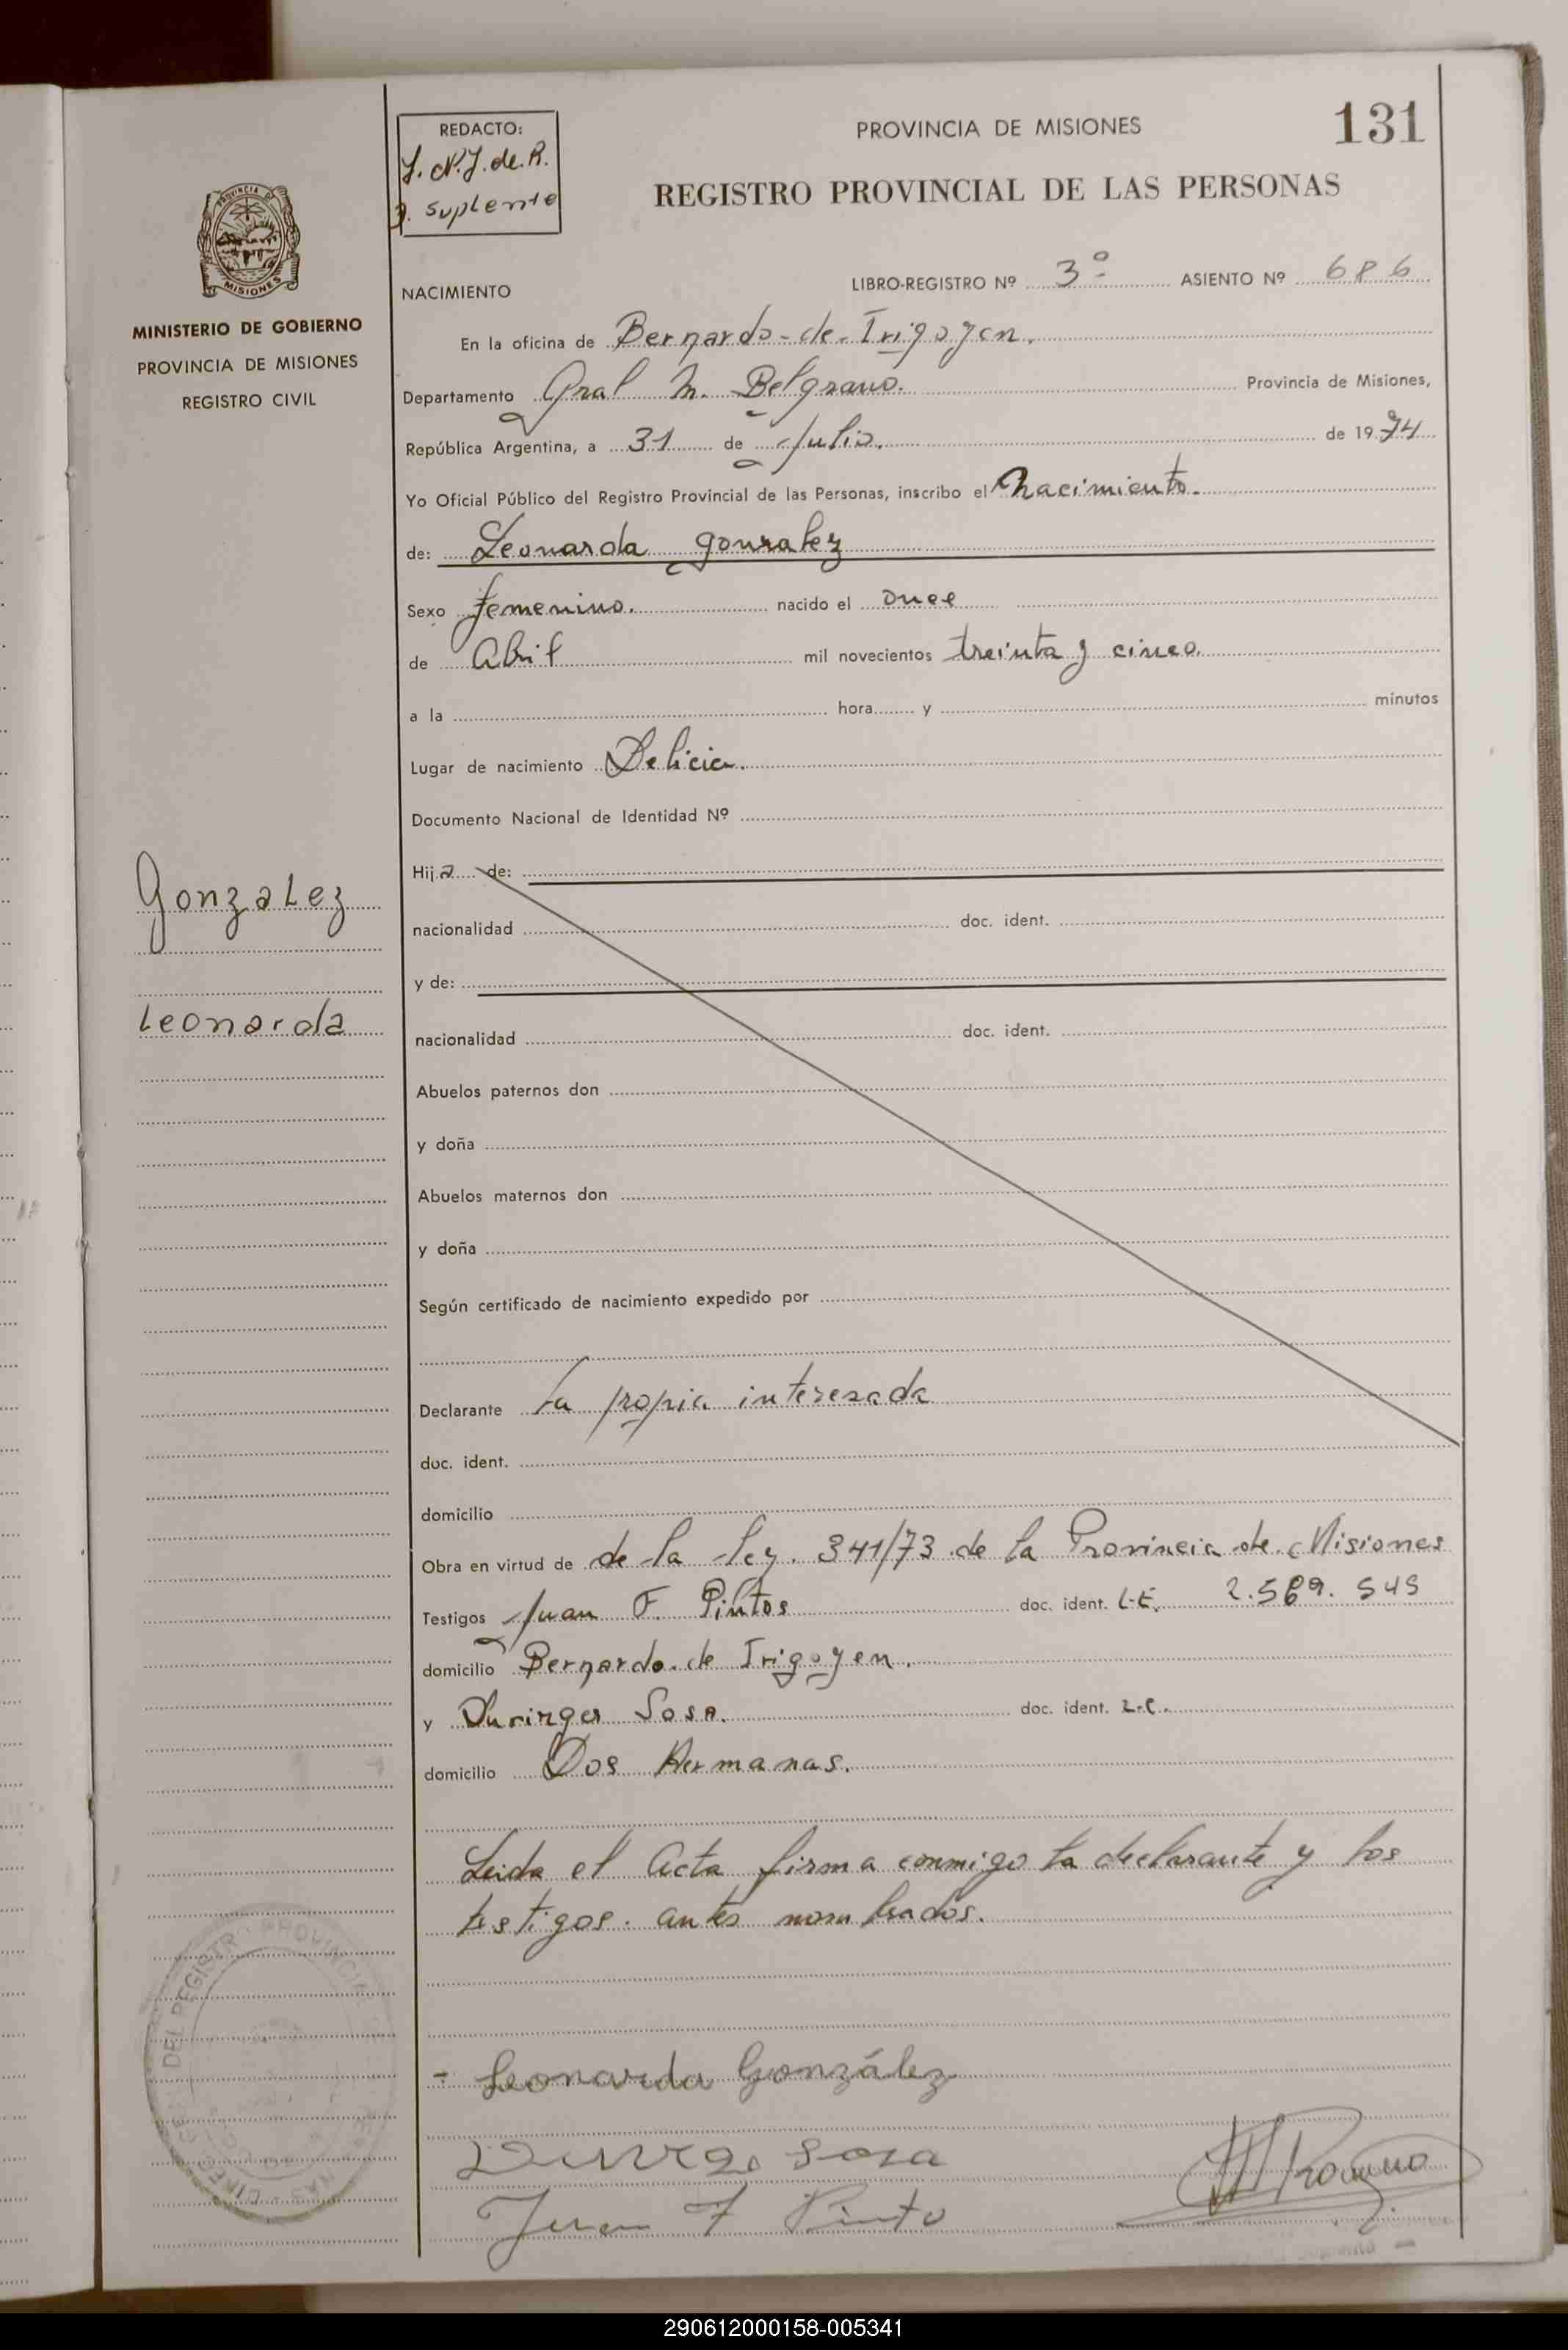 131
REDACTO:
PROVINCIA DE MISIONES
suplente
REGISTRO PROVINCIAL DE LAS PERSONAS
MISIONES
MINISTERIO DE GOBIERNO
PROVINCIA DE MISIONES
REGISTRO CIVIL
NACIMIENTO LIBRO-REGISTRO Nº 3º ASIENTO Nº 686
En la oficina de Bernardo de Irigoyen.
Departamento Gral M. Belgrano. Provincia de Misiones,
República Argentina, a 31 de Julio. de 1974
Yo Oficial Público del Registro Provincial de las Personas, inscribo el Nacimiento.
de: Leonarda gonzalez
Sexo femenino. nacido el once
de Abril mil novecientos treinta y cinco.
a la hora y minutos
Lugar de nacimiento Delicia.
Documento Nacional de Identidad Nº
Hija de:
Gonzalez
nacionalidad doc. ident.
y de:
Leonarda
nacionalidad doc. ident.
Abuelos paternos don
y doña
Abuelos maternos don
y doña
Según certificado de nacimiento expedido por
Declarante La propia interesada
doc. ident.
domicilio
Obra en virtud de de la ley. 341/73 de la Provincia de Misiones
Testigos Juan F. Pintos doc. ident. L.E. 2.569.545
domicilio Bernardo de Irigoyen.
y Sosa. doc. ident.
domicilio Dos Hermanas.
Leida el Acta firma conmigo la declarante y los
testigos. antes nombrados.
- Leonarda González
Sosa
Juan F Pinto
290612000158-005341